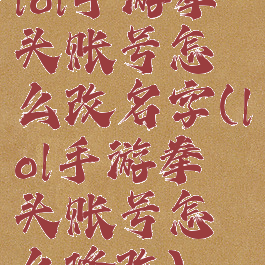 lol手游拳
头账号怎
么改名字(l
ol手游拳
头账号怎
么修改)